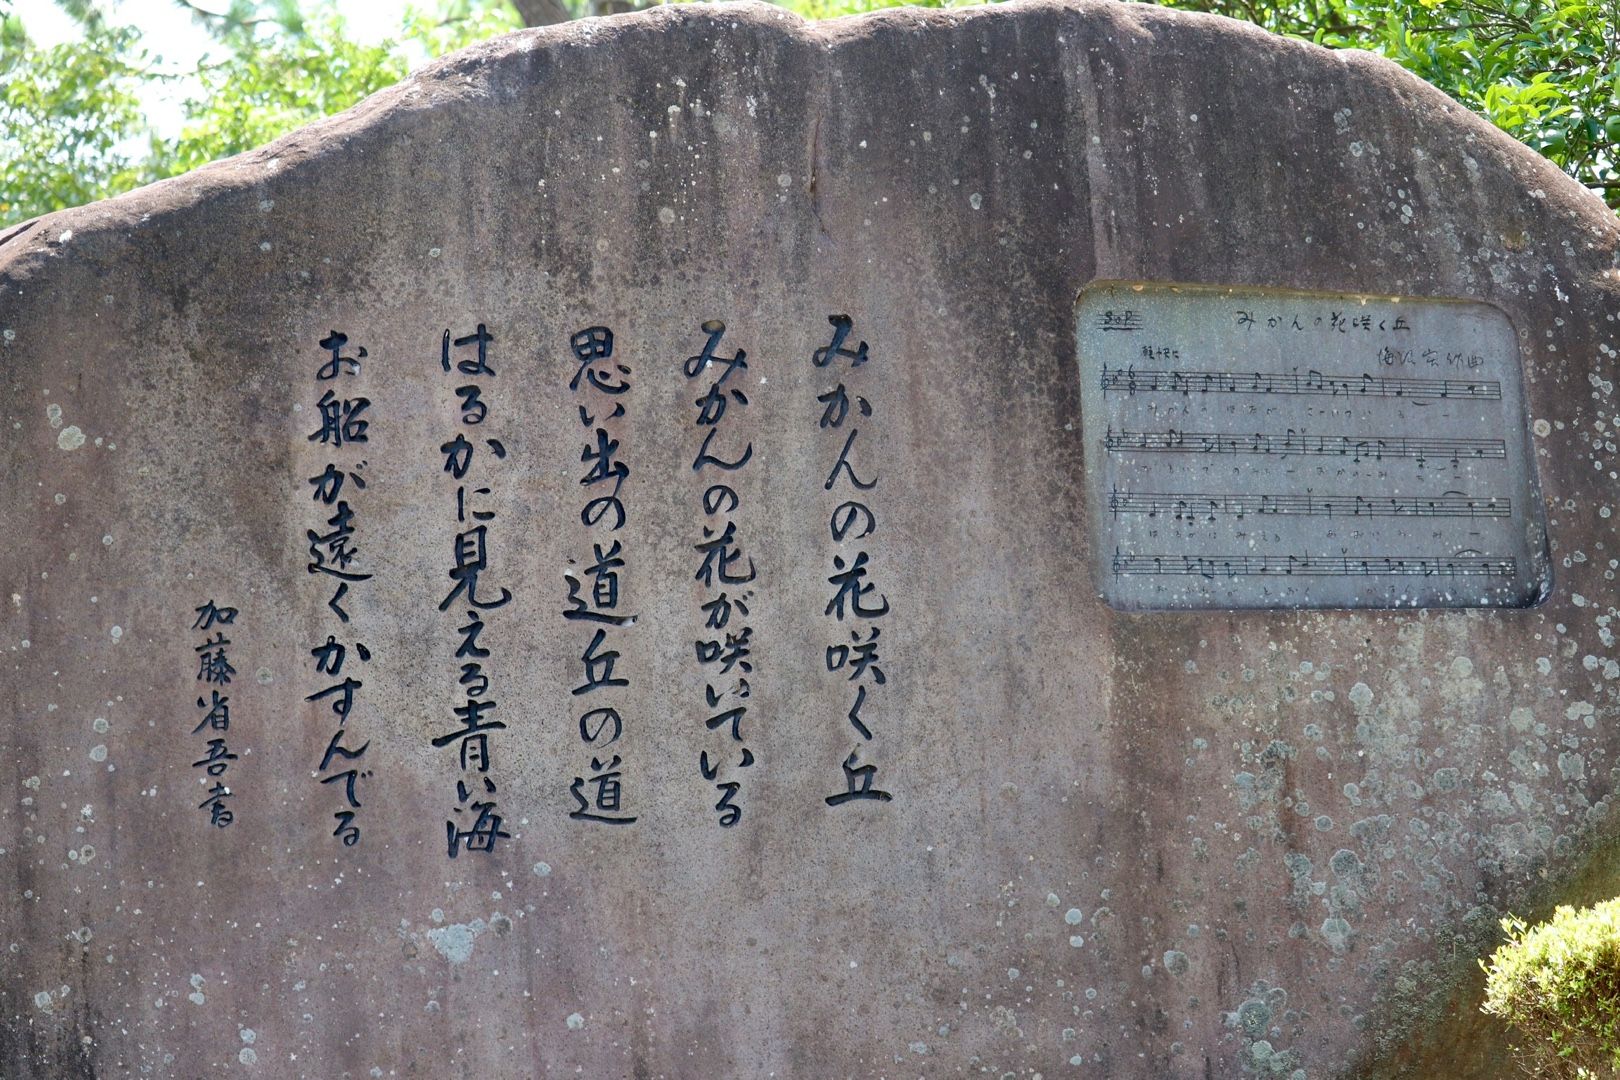 みかんの花咲く丘
みかんの花が咲いている
思い出の道丘の道
はるかに見える青い海
お船が遠くかすんでる
加藤省吾書
みかんの花咲く丘
軽快に
海沼実作曲
みかんのはなが さーいている
おもいでのみち おかのみち
はるかにみえる あおいうみ
おふねがとおく かすんでる